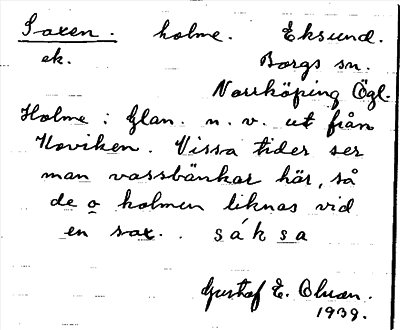 Saxen. holme. Eksund.
ek. Borgs sn.
Norrköping Ögl.
Holme i Glan. n. v. ut från
Hoviken. Vissa tider ser
man vassbänkar här, så
de o holmen liknas vid
en sax. . sáksa
Gustaf E. Olsson.
1939.